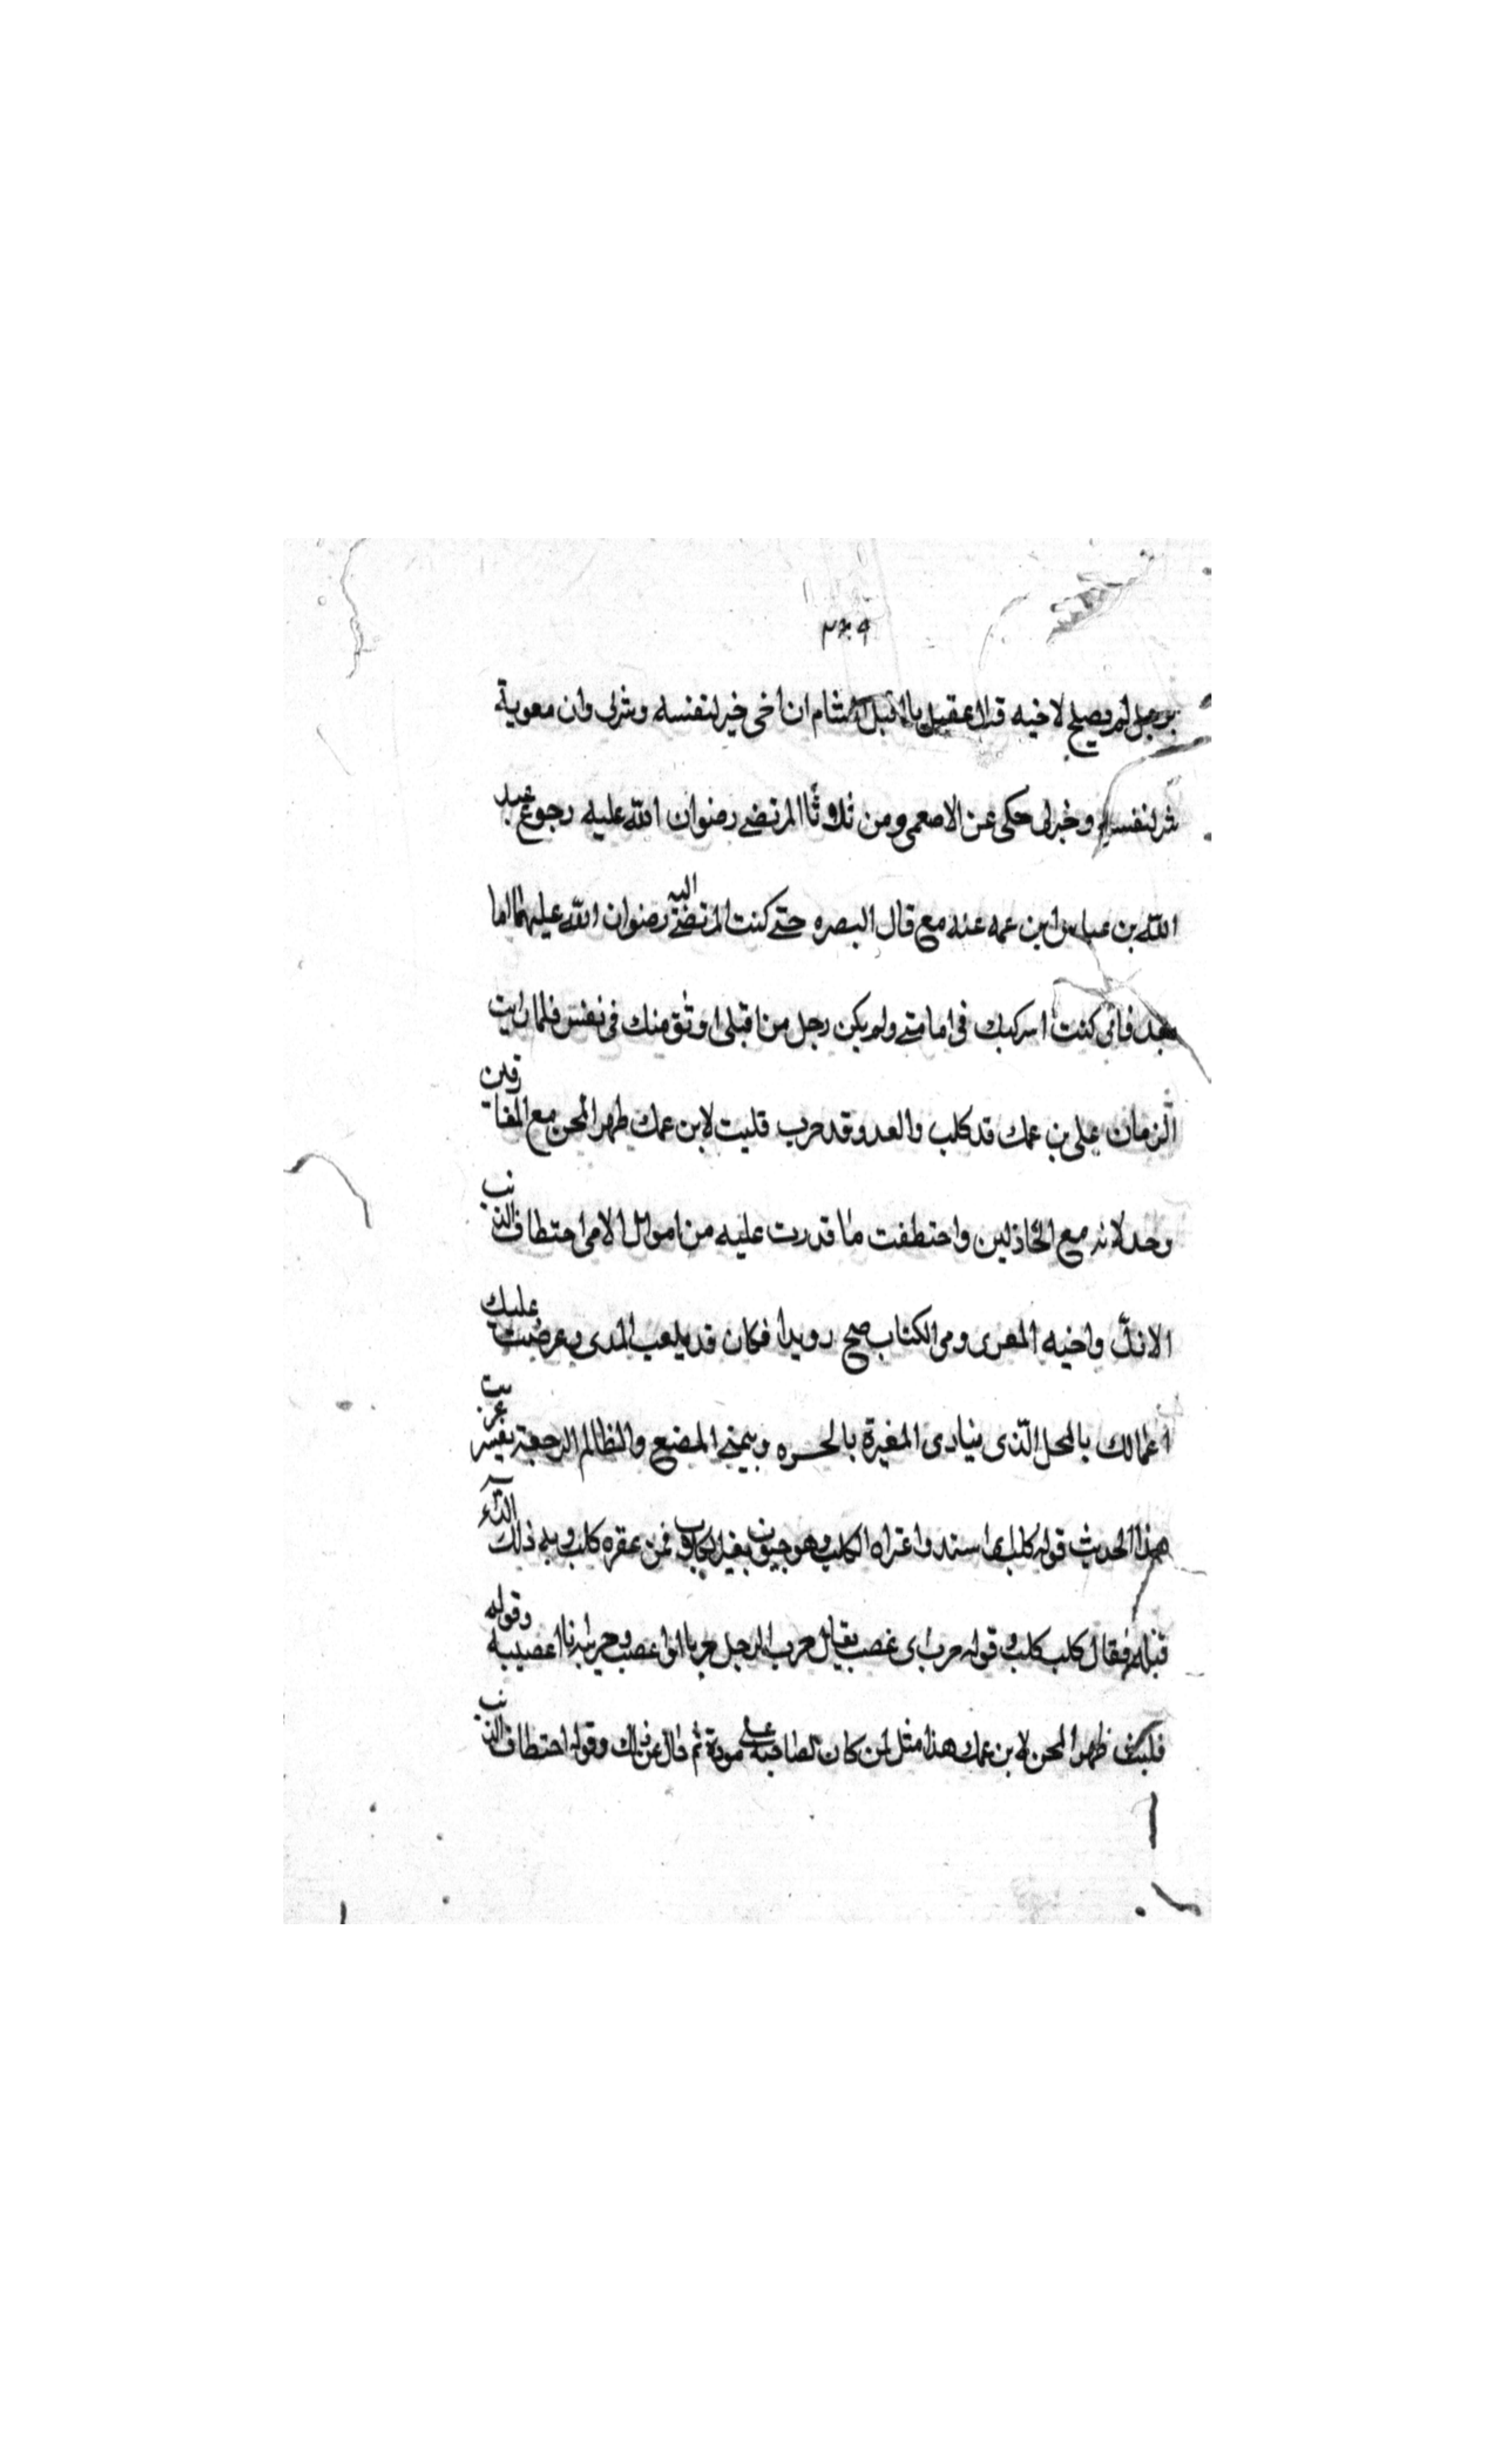 ٢٠٩
برجل لم يصلح لاخيه قال عقيل يا اهل الشام ان اخى خير لنفسه وشر لى وان معوية
شر لنفسه وخير لى حكى عن الاصمعى ومن المرتضى رضوان الله عليه رجوع عبد
الله بن عباس ابن عمه عنه مع قال البصره حتى كتب المرتضى اليه رضوان الله عليهما اما
بعد فانى كنت اشركتك فى امامتى ولم يكن رجل من اقبلى اوثق منك فى نفسى فلما رايت
الزمان على بن عمك قد كلب والعدو قد حرب قلبت لابن عمك ظهر المجن مع المفارقين
وخذلانه مع الخاذلين واختطفت ما قدرت عليه من اموال الامر اختطاف الذيب
الازل واخيه المعزى ومن الكتاب صح رويدا فكان قد بلغت المدى وعرضت عليك
اعمالك بالمحل الذى ينادى المغيرة بالحسره ويتمنى المضيع والظالم الرجعة تفسير غريب
هذا الحديث قوله كلب اى اشتد واعتراه الكلب وهو جنون الكلاب فمن عقره كلب وبه ذلك الداء
قتله فقال كلب كلب وقوله حرب اى غضب يقال حرب الرجل حربا اذا غضب وحربته انا اغضبته وقوله
قلبت ظهر المجن لابن عمك هذا مثل لمن كان لصاحبه على مودة ثم حال عن ذلك وقوله اختطاف الذيب